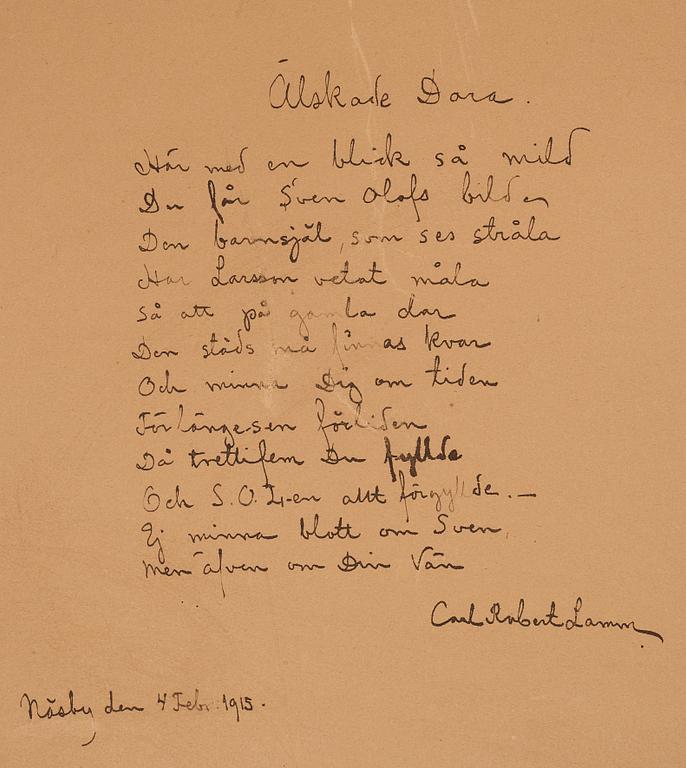 Älskade Dora.
Här med en blick så mild
Du får Sven Olofs bild
Den barnsjäl, som ses stråla
Har Larsson vetat måla
Så att på gamla dar
Den städs må finnas kvar
Och minna Dig om tiden
För länge sen förliden
Då trettifem Du fyllde
Och S.O. L-en allt förgyllde. —
Ej minna blott om Sven,
Men äfven om Din Vän
Carl Robert Lamm.
Näsby den 4 Febr. 1915.